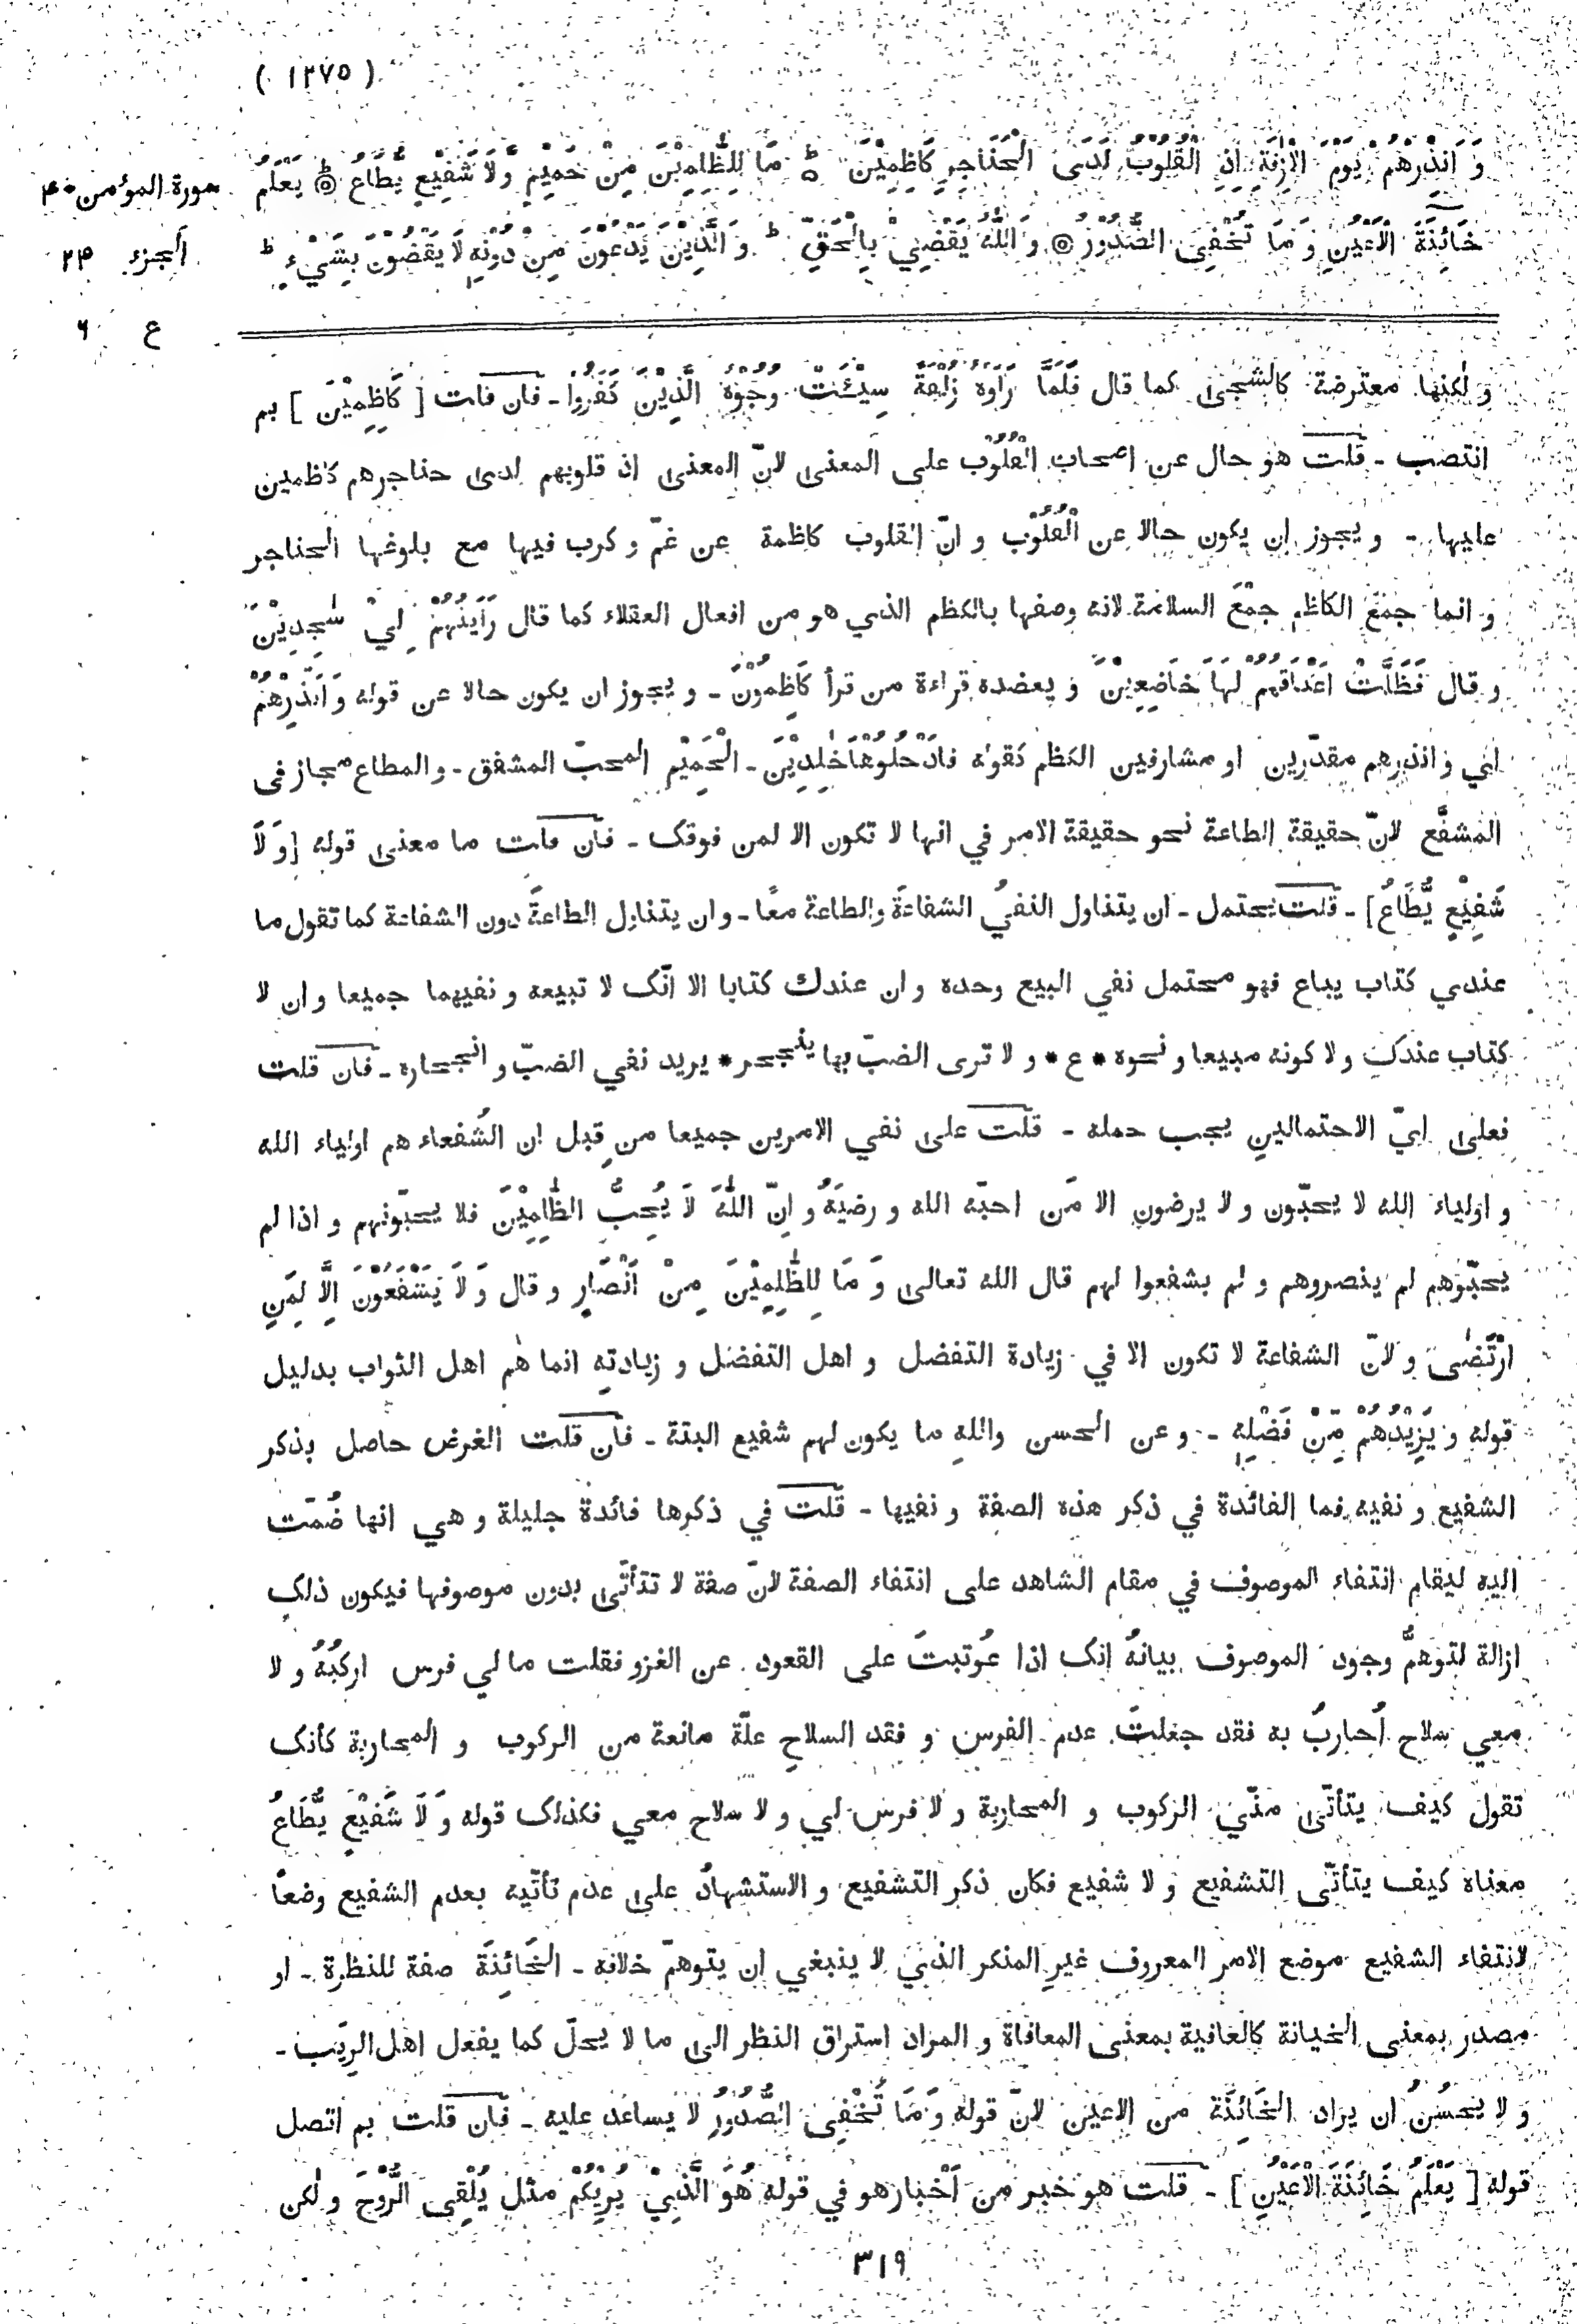 ( ١٢٧٥ )
وَ اَنْذِرْهُمْ يَوْمَ الْاٰزِفَةِ اِذِ الْقُلُوْبُ لَدَى الْحَنَاجِرِ كَاظِمِيْنَ ۵ط مَا لِلظّٰلِمِيْنَ مِنْ حَمِيْمٍ وَّلَا شَفِيْعٍ يُّطَاعُ ۵ط يَعْلَمُ
سورة المؤمن ۴۰
خَائِنَةَ الْاَعْيُنِ وَ مَا تُخْفِى الصُّدُوْرُ ۵ وَ اللّٰهُ يَقْضِيْ بِالْحَقِّ ط وَ الَّذِيْنَ يَدْعُوْنَ مِنْ دُوْنِهٖ لَا يَقْضُوْنَ بِشَيْءٍ ط
الجزء ۲۴
ع ۶
و لٰكنها معترضة كالشجى كما قال فَلَمَّا رَاَوْهُ زُلْفَةً سِيْٓئَتْ وُجُوْهُ الَّذِيْنَ كَفَرُوْا - فان قلت [ كَاظِمِيْنَ ] بم
انتصب - قلت هو حال عن اصحاب القُلُوْب على المعنى لانّ المعنى اذ قلوبهم لدى حناجرهم كاظمين
عليها - و يجوز ان يكون حالا عن الْقُلُوْب و انّ القلوب كاظمة عن غمّ و كرب فيها مع بلوغها الحناجر
و انما جُمع الكاظم جمْعَ السلامة لانه وصفها بالكظم الذي هو من افعال العقلاء كما قال رَاَيْتُهُمْ لِيْ سٰجِدِيْنَ
و قال فَظَلَّتْ اَعْنَاقُهُمْ لَهَا خَاضِعِيْنَ و يعضده قراءة من قرأ كَاظِمُوْنَ - و يجوز ان يكون حالا عن قوله وَ اَنْذِرْهُمْ
اي و انذرهم مقدّرين او مشارفين الكظم كقوله فَادْخُلُوْهَا خٰلِدِيْنَ - الْحَمِيْم المحبّ المشفق - و المطاع مجاز فى
المُشفَّع لانّ حقيقة الطاعة نحو حقيقة الامر في انها لا تكون الا لمن فوقك - فان قلت ما معنى قوله [وَ لَا
شَفِيْعٍ يُّطَاعُ] - قلت يحتمل - ان يتناول النفيُ الشفاعةَ والطاعة معًا - و ان يتناول الطاعةَ دون الشفاعة كما تقول ما
عندي كتاب يباع فهو محتمل نفي البيع وحده و ان عندك كتابا الا انّك لا تبيعه و نفيهما جميعا و ان لا
كتاب عندك و لا كونه مبيعا و نحوه * ع * و لا ترى الضبّ بها ينجحر * يريد نفي الضبّ و انجحاره - فان قلت
فعلى ايّ الاحتمالين يجب حمله - قلت على نفي الامرين جميعا من قِبل ان الشُفعاء هم اولياء الله
و اولياء الله لا يحبّون و لا يرضون الا مَن احبّه الله و رضيَهُ و انّ اللّٰهَ لَا يُحِبُّ الظّٰلِمِيْنَ فلا يحبّونهم و اذا لم
يحبّوهم لم ينصروهم و لم يشفعوا لهم قال الله تعالى وَ مَا لِلظّٰلِمِيْنَ مِنْ اَنْصَارٍ و قال وَ لَا يَشْفَعُوْنَ اِلَّا لِمَنِ
ارْتَضٰى و لانّ الشفاعة لا تكون الا في زيادة التفضل و اهل التفضل و زيادتِه انما هم اهل الثواب بدليل
قوله و يَزِيْدُهُمْ مِّنْ فَضْلِهٖ - و عن الحسن واللهِ ما يكون لهم شفيع البتة - فان قلت الغرض حاصل بذكر
الشفيع و نفيه فما الفائدة في ذكر هذه الصفة و نفيها - قلت في ذكرها فائدة جليلة و هي انها ضُمّت
اليه ليقام انتفاء الموصوف في مقام الشاهد على انتفاء الصفة لانّ صفة لا تتأتّى بدون موصوفها فيكون ذلك
ازالة لتوهُّم وجود الموصوف بيانهُ انك اذا عُوتبتَ على القعود عن الغزو فقلت ما لي فرس اركبُهُ و لا
معي سلاح اُحاربُ به فقد جعلتَ عدم الفرس و فقد السلاح علّة مانعة من الركوب و المحاربة كأنك
تقول كيف يتأتّى منّي الركوب و المحاربة و لا فرس لي و لا سلاح معي فكذلك قوله وَ لَا شَفِيْعٍ يُّطَاعُ
معناه كيف يتأتّى التشفيع و لا شفيع فكان ذكر التشفيع و الاستشهاد على عدم تأتّيه بعدم الشفيع وضعاً
لانتفاء الشفيع موضع الامر المعروف غيرِ المنكر الذي لا ينبغي ان يتوهمّ خلافه - الخَائِنَة صفة للنظرة - او
مصدر بمعنى الخيانة كالعافية بمعنى المعافاة و المراد استراق النظر الى ما لا يحلّ كما يفعل اهل الرِيَب -
و لا يحسُنُ ان يراد الخَائِنَة من الاعين لانّ قوله وَ مَا تُخْفِى الصُّدُوْرُ لا يساعد عليه - فان قلت بم اتصل
قوله [ يَعْلَمُ خَائِنَةَ الْاَعْيُنِ ] - قلت هو خبر من اَخْبار هو في قوله هُوَ الَّذِيْ يُرِيْكُمْ مثل يُلْقِى الرُّوْحَ و لكن
٣١٩